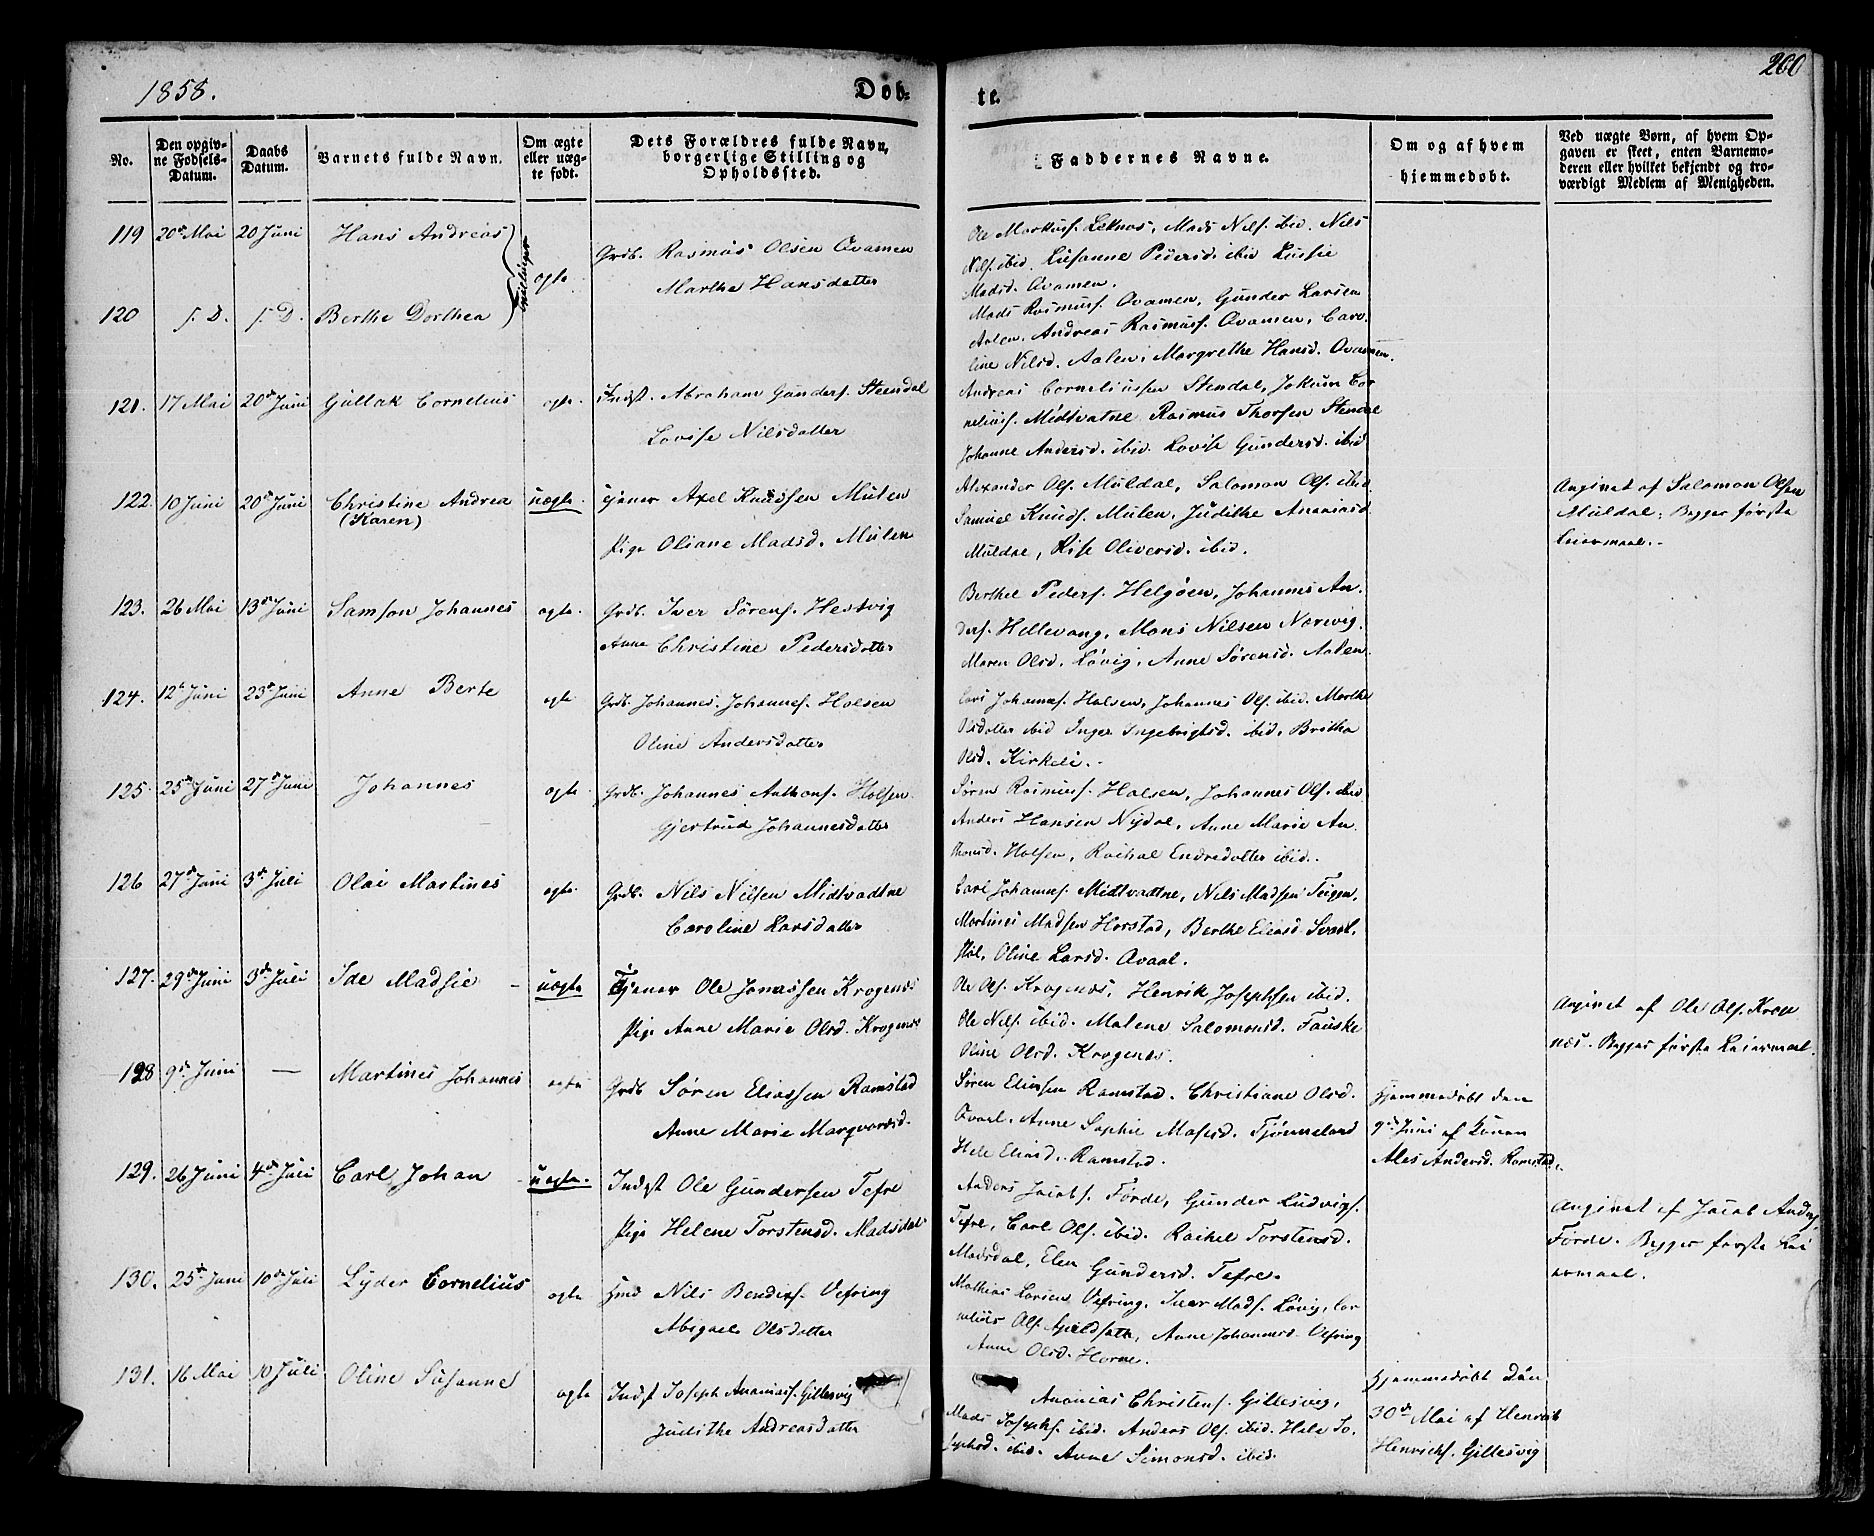 1858.
Døb-
te.
200
No.
Den opgiv-
ne Fødsels-
Datum.
Daabs
Datum.
Barnets fulde Navn.
Om ægte
eller uæg-
te født.
Dets Forældres fulde Navn,
borgerlige Stilling og
Opholdssted.
Faddernes Navne.
Om og af hvem
hjemmedøbt.
Ved uægte Børn, af hvem Op-
gaven er skeet, enten Barnemo-
deren eller hvilket bekjendt og tro-
værdigt Medlem af Menigheden.
119 20de Mai 20 Juni Hans Andreas
Tvillinger
ægte
Grdb. Rasmus Olsen Qvamen
Marthe Hansdatter
Ole Markusf. Leknæs, Mads Nilsf. ibid. Nils
Nilsf. ibid. Susanne Pedersd. ibid Lussie
Madsd. Qvamen.
120 f. D. f. D. Berthe Dorthea
Mads Rasmusf. Qvamen, Gunder Larsen
Aalen, Andreas Rasmusf. Qvamen, Caro-
line Nilsd. Aalen, Margrethe Hansd. Qvamen.
121. 17 Mai 20de Juni Gullak Cornelius ægte.
Indst. Abraham Gundersf. Steendal
Lovise Nilsdatter
Andreas Corneliussen Stendal, Jokum Cor
neliusf. Midtvatne Rasmus Thorsen Stendal
Johanne Andersd. ibid. Lovise Gundersd. ibid
122. 10 Juni 20de Juni Christine Andrea
(Karen)
uægte.
Tjener Axel Knudsen Mulen
Pige Oliane Madsd. Mulen
Alexander Olsf. Muldal, Salomon Olsf. ibid.
Samuel Knudsf. Mulen, Judithe Ananiasd.
Muldal, Lise Oliversd. ibid.
Angivet af Salomon Olsen
Muldal; Begges første
Leiermaal.
123. 26 Mai 13de Juni Samson Johannes ægte.
Grdb. Iver Sørensf. Hestvig
Anne Christine Pedersdatter
Berthel Pedersf. Helgøen, Johannes An-
dersf. Hellevang, Mons Nilsen Nærvig,
Maren Olsd. Løvig, Anne Sørensd. Aalen.
124. 12te Juni 23de Juni Anne Berte ægte
Grdb. Johannes Johannesf. Holsen
Oline Andersdatter
Lars Johannesf. Holsen, Johannes Olsf. ibid. Marthe
Olsdatter ibid Inger Ingebrigtsd. ibid, Britha
Olsd. Kirkeli.
125. 25de Juni 27de Juni Johannes ægte
Grdb. Johannes Anthonsf. Holsen
Gjertrud Johannesdatter
Søren Rasmusf. Holsen, Johannes Olsf. ibid
Anders Hansen Nydal, Anne Marie An-
thonsd. Holsen, Rachel Endredatter ibid.
126 27de Juni 3de Juli Olai Martines ægte
Grdb. Nils Nilsen Midtvadtne
Caroline Larsdatter
Carl Johannesf. Midtvadtne, Nils Madsen Teigen,
Martines Madsen Horstad, Berthe Eliasd. Svart-
Hol, Oline Larsd. Qvaal.
127. 29de Juni 3de Juli Ide Madsie uægte
Tjener Ole Jonassen Krogenæs
Pige Anne Marie Olsd. Krogenæs
Ole Olsf. Krogenæs, Henrik Josephsen ibid.
Ole Nilsf. ibid. Malene Salomonsd. Fauske
Oline Olsd. Krogenæs.
Angivet af Ole Olsf. Kroge
næs. Begges første Leiermaal.
128 9de Juni — Martines Johannes ægte
Grdb Søren Eliassen Ramstad
Anne Marie Margvardsd.
Søren Eliassen Ramstad. Christiane Olsd.
Qvaal. Anne Sophie Masesd. Tjønneland
Hele Eliasd. Ramstad.
Hjemmedøbt den
9de Juni af Konen
Ales Andersd. Ramstad.
129. 26 Juni 4de Juli Carl Johan uægte.
Indst Ole Gundersen Tefre
Pige Helene Torstensd. Madsdal
Anders Jacobsf. Førde, Gunder Ludvigsf.
Tefre, Carl Olsf. ibid. Rachel Torstensd.
Madsdal, Elen Gundersd. Tefre.
Angivet af Jacob Andersf.
Førde. Begges første Lei
ermaal.
130. 25de Juni 10de Juli Lyder Cornelius ægte
Hmd Nils Bendixf. Vefring
Abigael Olsdatter
Mathias Larsen Vefring, Iver Madsf. Løvig, Cor
nelius Olsf. Aprildsæth, Anne Johannesd. Vefring
Anne Olsd. Horne.
131. 16 Mai 10 Juli Oline Susanne ægte
Indst Joseph Ananiasf. Gillesvig
Judithe Andreasdatter
Ananias Christensf. Gillesvig,
Mads Josephsf. ibid. Anders Olsf. ibid. Hele Jo-
sephsd. ibid. Anne Simonsd. ibid.
Hjemmedøbt den
30de Mai af Henrik
Henriksf. Gillesvig